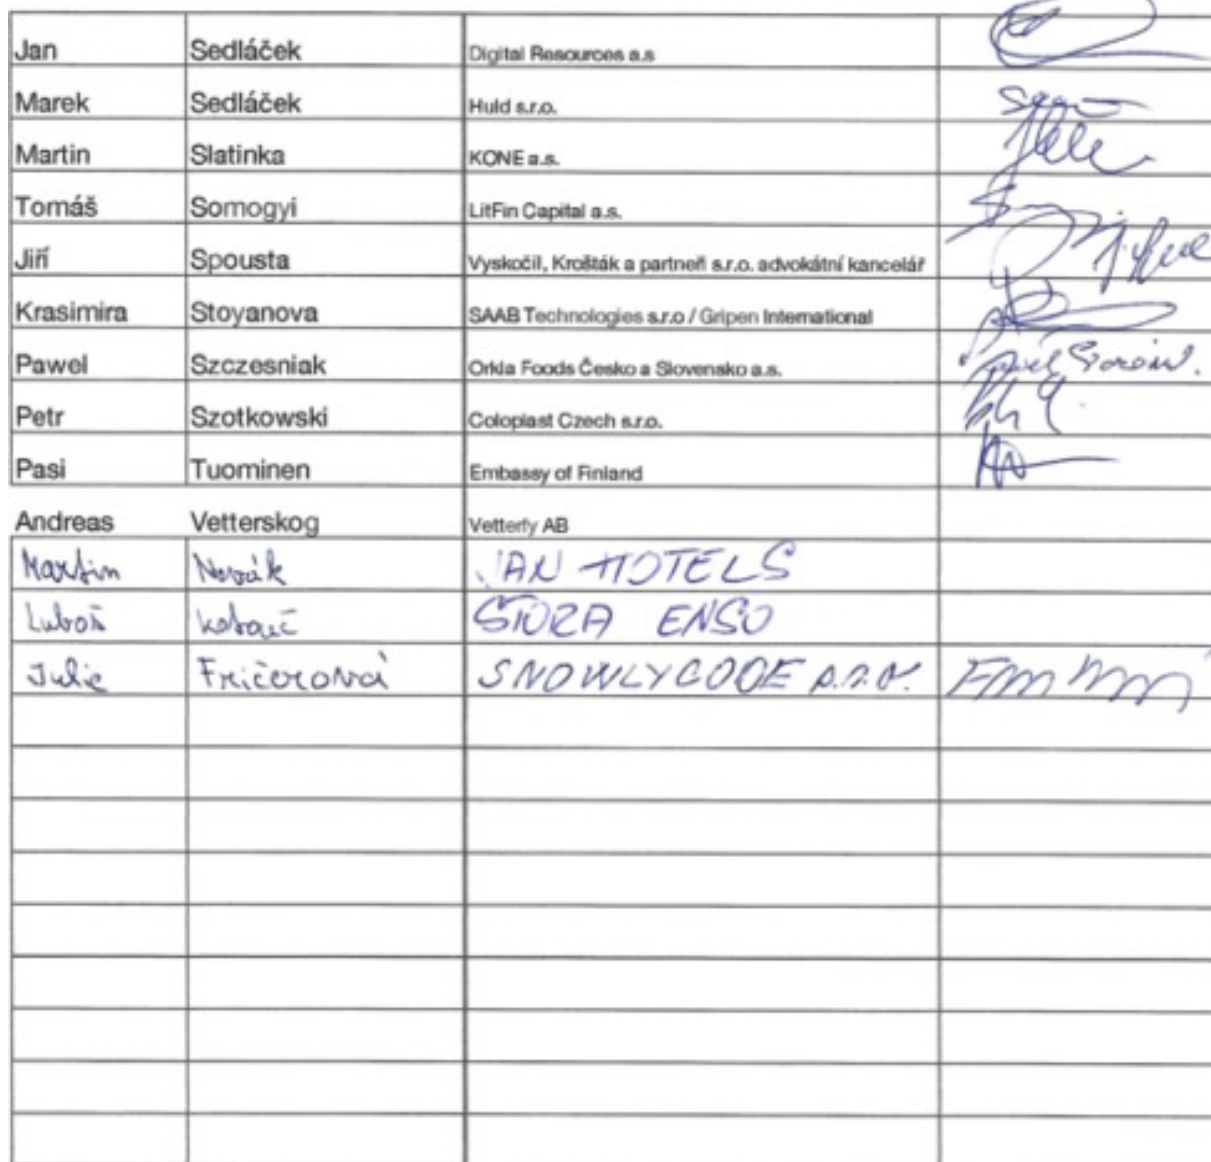 Jan Sedláček Digital Resources a.s
Marek Sedláček Huld s.r.o.
Martin Slatinka KONE a.s.
Tomáš Somogyi LitFin Capital a.s.
Jiří Spousta Vyskočil, Krošták a partneři s.r.o. advokátní kancelář
Krasimira Stoyanova SAAB Technologies s.r.o / Gripen International
Pawel Szczesniak Orkla Foods Česko a Slovensko a.s.
Petr Szotkowski Coloplast Czech s.r.o.
Pasi Tuominen Embassy of Finland
Andreas Vetterskog Vetterfy AB
Martin Novák JAN HOTELS
Luboš STORA ENSO
Julie Fričerová SNOWLYCODE s.r.o.